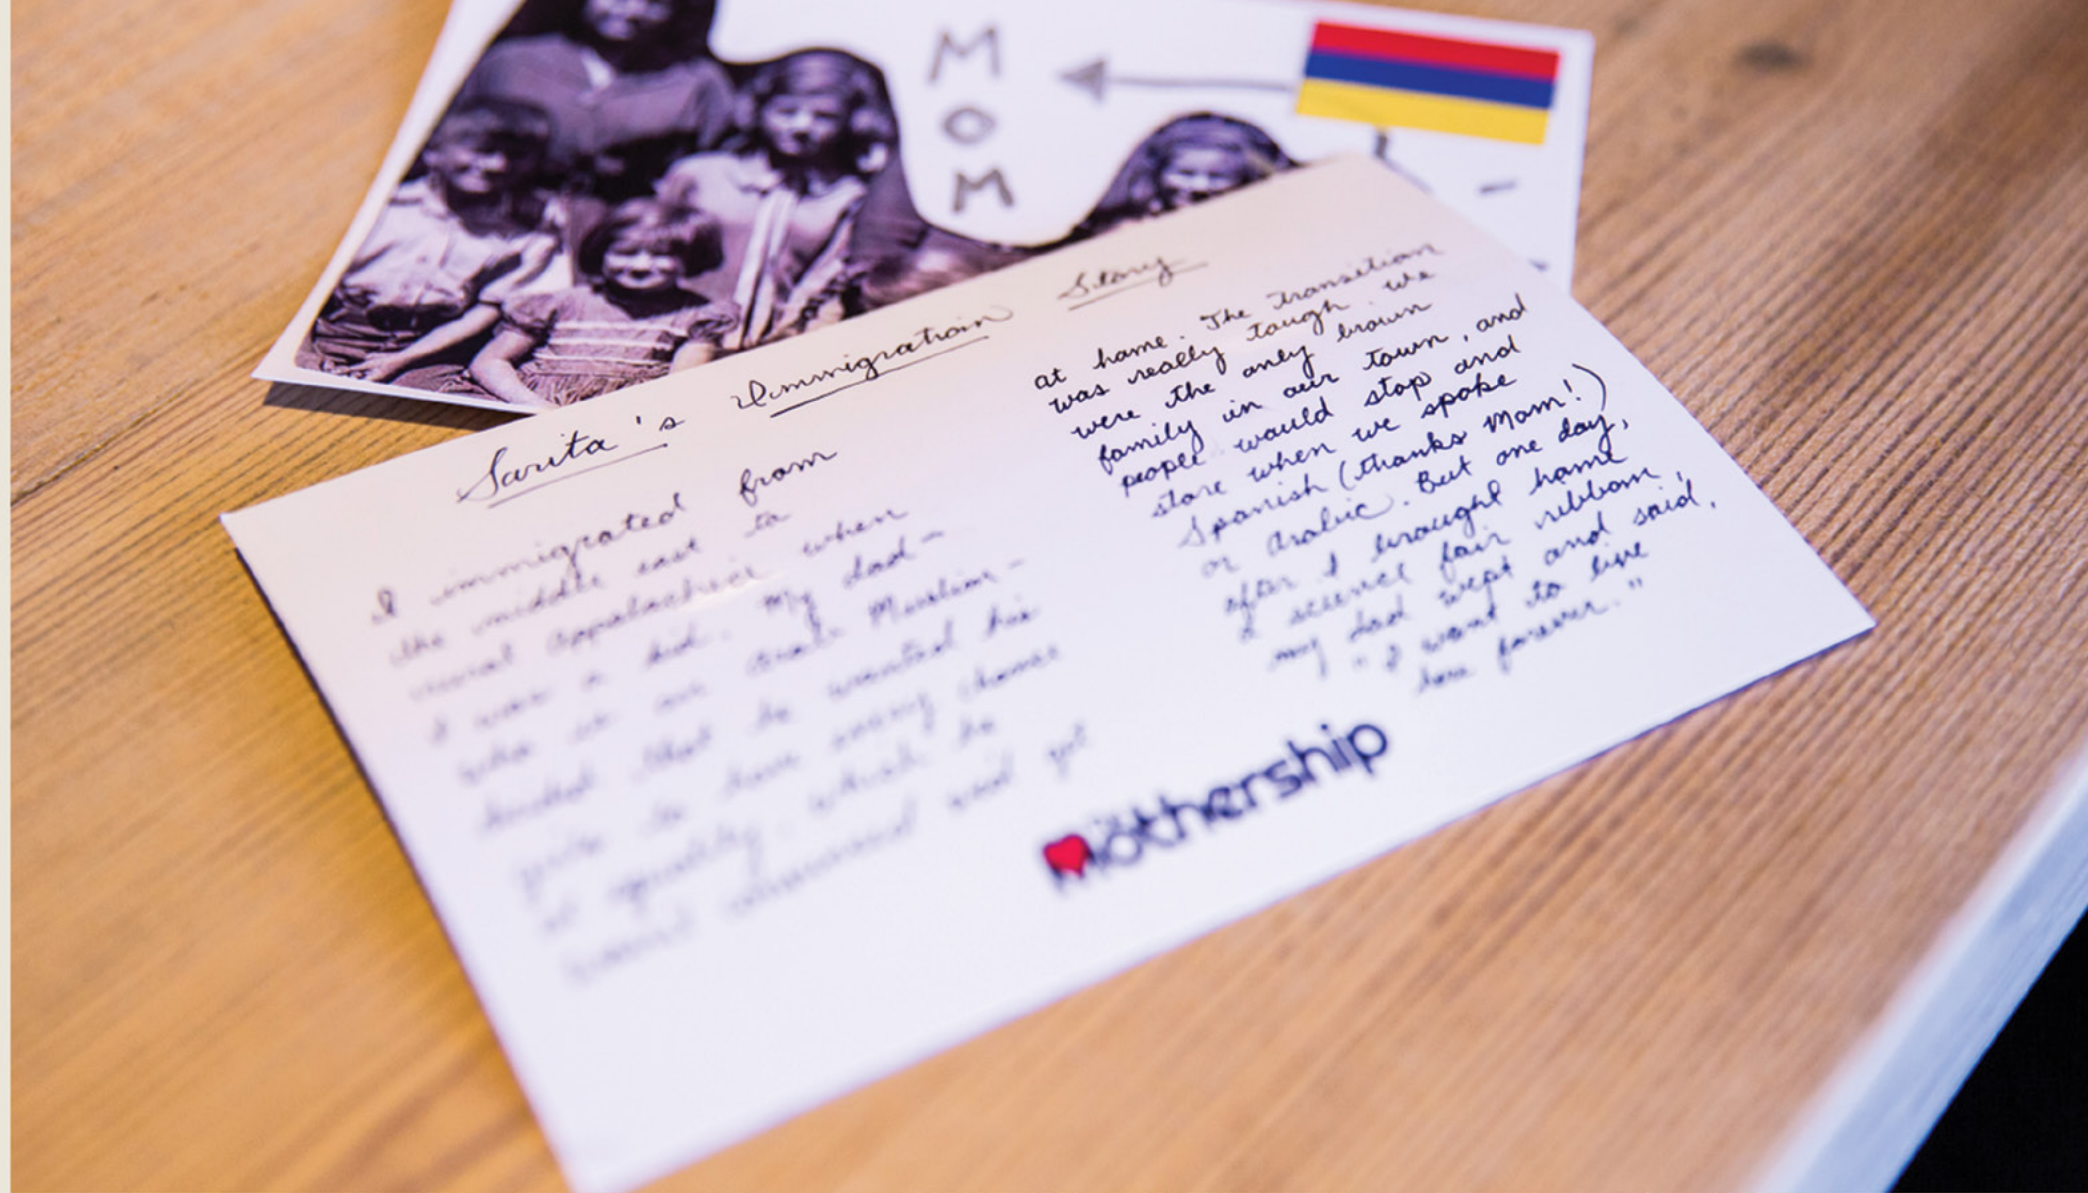 M
O
M
Sarita's Immigration Story
I immigrated from
the middle east to
rural Appalachia when
I was a kid. My dad-
who is an arab Muslim-
decided that he wanted his
girls to have every chance
at equality, which he
at home. The transition
was really tough. We
were the only brown
family in our town, and
people would stop and
stare when we spoke
Spanish (thanks Mom!)
or Arabic. But one day,
after I brought home
a science fair ribbon,
my dad wept and said,
"I want to live
here forever."
mothership